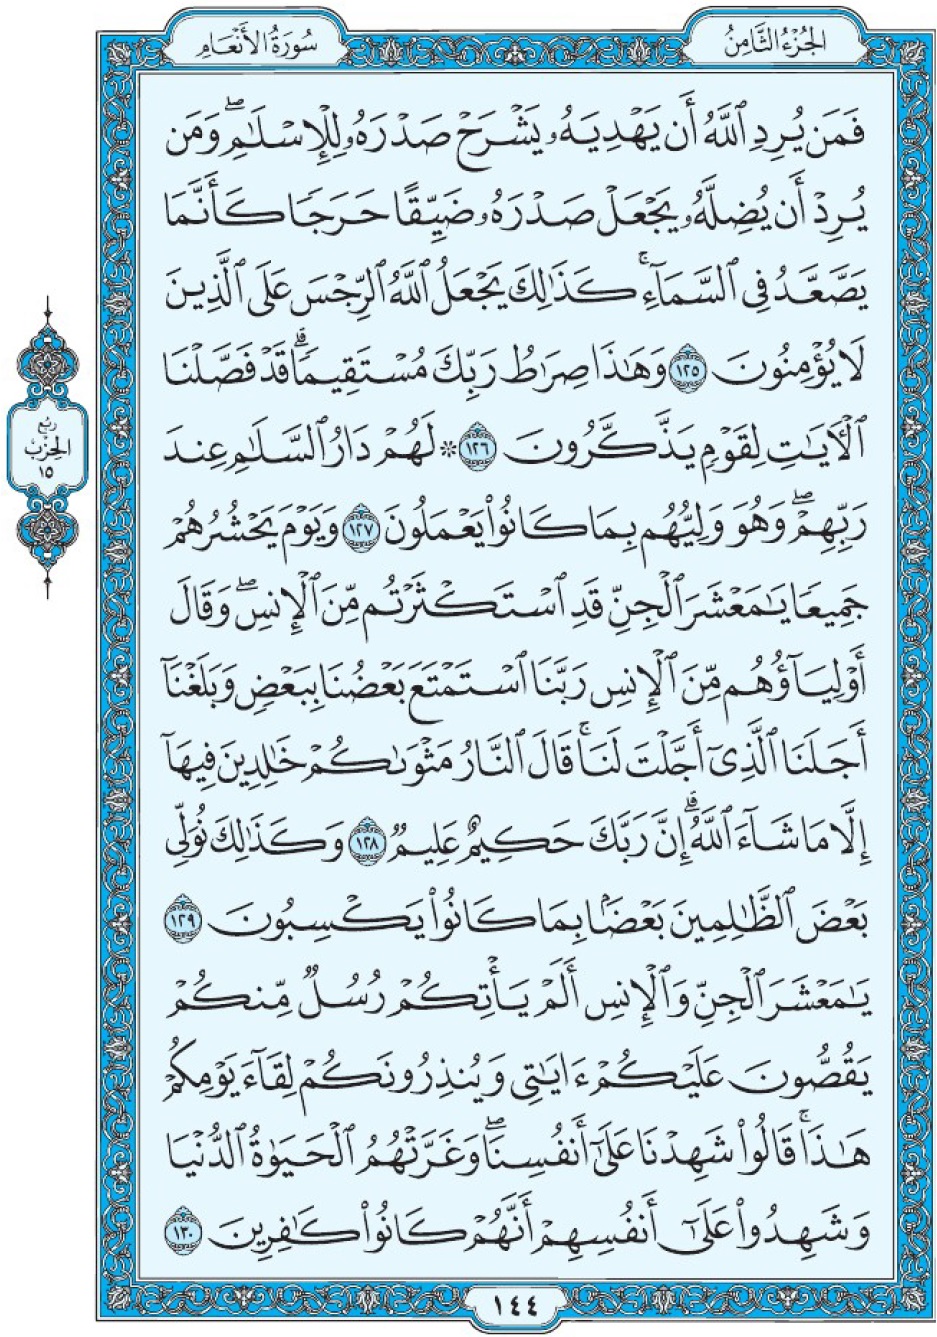 الجُزْءُ الثَّامِنُ
سُورَةُ الأَنْعَامِ
فَمَن يُرِدِ ٱللَّهُ أَن يَهْدِيَهُۥ يَشْرَحْ صَدْرَهُۥ لِلْإِسْلَٰمِۖ وَمَن
يُرِدْ أَن يُضِلَّهُۥ يَجْعَلْ صَدْرَهُۥ ضَيِّقًا حَرَجًا كَأَنَّمَا
يَصَّعَّدُ فِي ٱلسَّمَآءِۚ كَذَٰلِكَ يَجْعَلُ ٱللَّهُ ٱلرِّجْسَ عَلَى ٱلَّذِينَ
لَا يُؤْمِنُونَ ١٢٥ وَهَٰذَا صِرَٰطُ رَبِّكَ مُسْتَقِيمًاۗ قَدْ فَصَّلْنَا
ٱلْأٓيَٰتِ لِقَوْمٍ يَذَّكَّرُونَ ١٢٦ ۞ لَهُمْ دَارُ ٱلسَّلَٰمِ عِندَ
رَبِّهِمْۖ وَهُوَ وَلِيُّهُم بِمَا كَانُواْ يَعْمَلُونَ ١٢٧ وَيَوْمَ يَحْشُرُهُمْ
جَمِيعًا يَٰمَعْشَرَ ٱلْجِنِّ قَدِ ٱسْتَكْثَرْتُم مِّنَ ٱلْإِنسِۖ وَقَالَ
أَوْلِيَآؤُهُم مِّنَ ٱلْإِنسِ رَبَّنَا ٱسْتَمْتَعَ بَعْضُنَا بِبَعْضٍ وَبَلَغْنَآ
أَجَلَنَا ٱلَّذِيٓ أَجَّلْتَ لَنَاۚ قَالَ ٱلنَّارُ مَثْوَىٰكُمْ خَٰلِدِينَ فِيهَآ
إِلَّا مَا شَآءَ ٱللَّهُۗ إِنَّ رَبَّكَ حَكِيمٌ عَلِيمٌ ١٢٨ وَكَذَٰلِكَ نُوَلِّي
بَعْضَ ٱلظَّٰلِمِينَ بَعْضَۢا بِمَا كَانُواْ يَكْسِبُونَ ١٢٩
يَٰمَعْشَرَ ٱلْجِنِّ وَٱلْإِنسِ أَلَمْ يَأْتِكُمْ رُسُلٌ مِّنكُمْ
يَقُصُّونَ عَلَيْكُمْ ءَايَٰتِي وَيُنذِرُونَكُمْ لِقَآءَ يَوْمِكُمْ
هَٰذَاۚ قَالُواْ شَهِدْنَا عَلَىٰٓ أَنفُسِنَاۖ وَغَرَّتْهُمُ ٱلْحَيَوٰةُ ٱلدُّنْيَا
وَشَهِدُواْ عَلَىٰٓ أَنفُسِهِمْ أَنَّهُمْ كَانُواْ كَٰفِرِينَ ١٣٠
رُبُع
الحِزْبِ
١٥
١٤٤